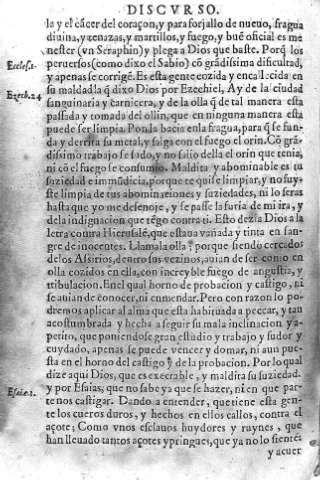 DISCVRSO.
la y el cácer del coraçon, y para forjallo de nueuo, fragua
diuina, tenazas, y martillos, y fuego, y buē oficial es me
nester (vn Seraphin) y plega a Dios que baste. Porq̃ los
peruersos (como dixo el Sabio) cō grādissima dificultad,
Eccles. 1.
y apenas se corrigē. Es esta gente cozida y encallecida en
su maldad la q̃ dixo Dios por Ezechiel, Ay de la ciudad
Ezech. 24
sanguinaria y carnicera, y de la olla q̃ de tal manera esta
passada y tomada del ollin, que en ninguna manera esta
puede ser limpia. Ponla hazia en la fragua, para q̃ se fun-
da y derrita su metal, y salga con el fuego el orin. Cō grā-
dissimo trabajo se sudo, y no salio della el orin que tenia,
ni cō el fuego se consumio. Maldita y abominable es tu
suziedad e immūdicia, porque te quise limpiar, y no fuy-
ste limpia de tus abominationes y suziedades, ni lo seras
hasta que yo me desenoje, y se passe la furia de mi ira, y
de la indignacion que tēgo contra ti. Esto dezia Dios a la
letra contra Hierusalē, que estaua vañada y tinta en san-
gre de inocentes. Llamala olla, porque siendo cercados
de los Assirios, dentro sus vezinos, auian de ser como en
olla cozidos en ella, con increyble fuego de angustia, y
tribulacion. En el qual horno de probacion y castigo, ni
se auian de conocer, ni enmendar. Pero con razon lo po-
dremos aplicar al alma que esta habituada a peccar, y tan
acostumbrada y hecha a seguir su mala inclinacion y a-
petito, que poniendose gran estudio y trabajo y sudor y
cuydado, apenas se puede vencer y domar, ni aun pue-
sta en el horno del castigo y de la probacion. Por lo qual
dize aqui Dios, que es execrable, y maldita su suziedad.
y por Esaias, que no sabe ya que se hazer, ni en que par-
Esaie. 1.
te nos castigar. Dando a entender, que tiene esta gen-
te los cueros duros, y hechos en ellos callos, contra el
açote; Como vnos esclauos huydores y ruynes, que
han lleuado tantos açotes y pringues, que ya no lo sientē
y acuer